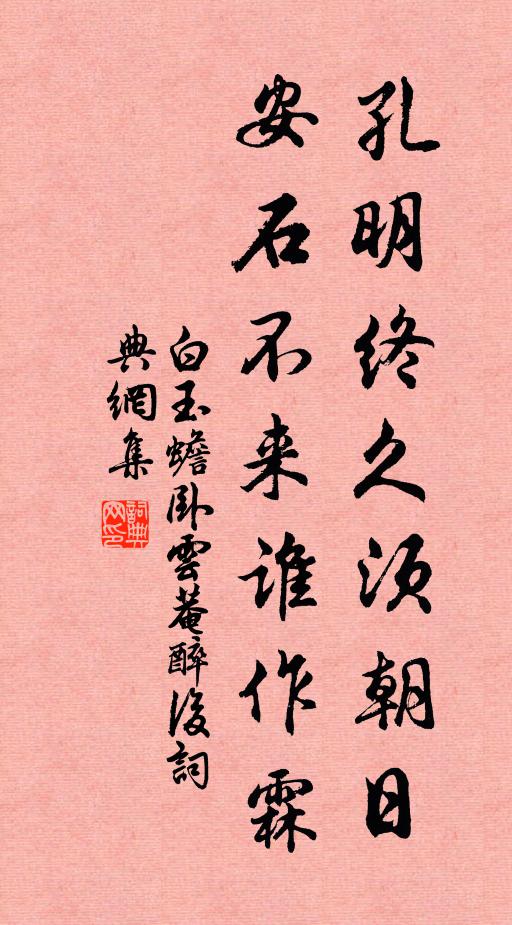 孔明终久须朝日
安石不来谁作霖
白玉蟾卧雲菴醉後詞
典網集
詞典网印